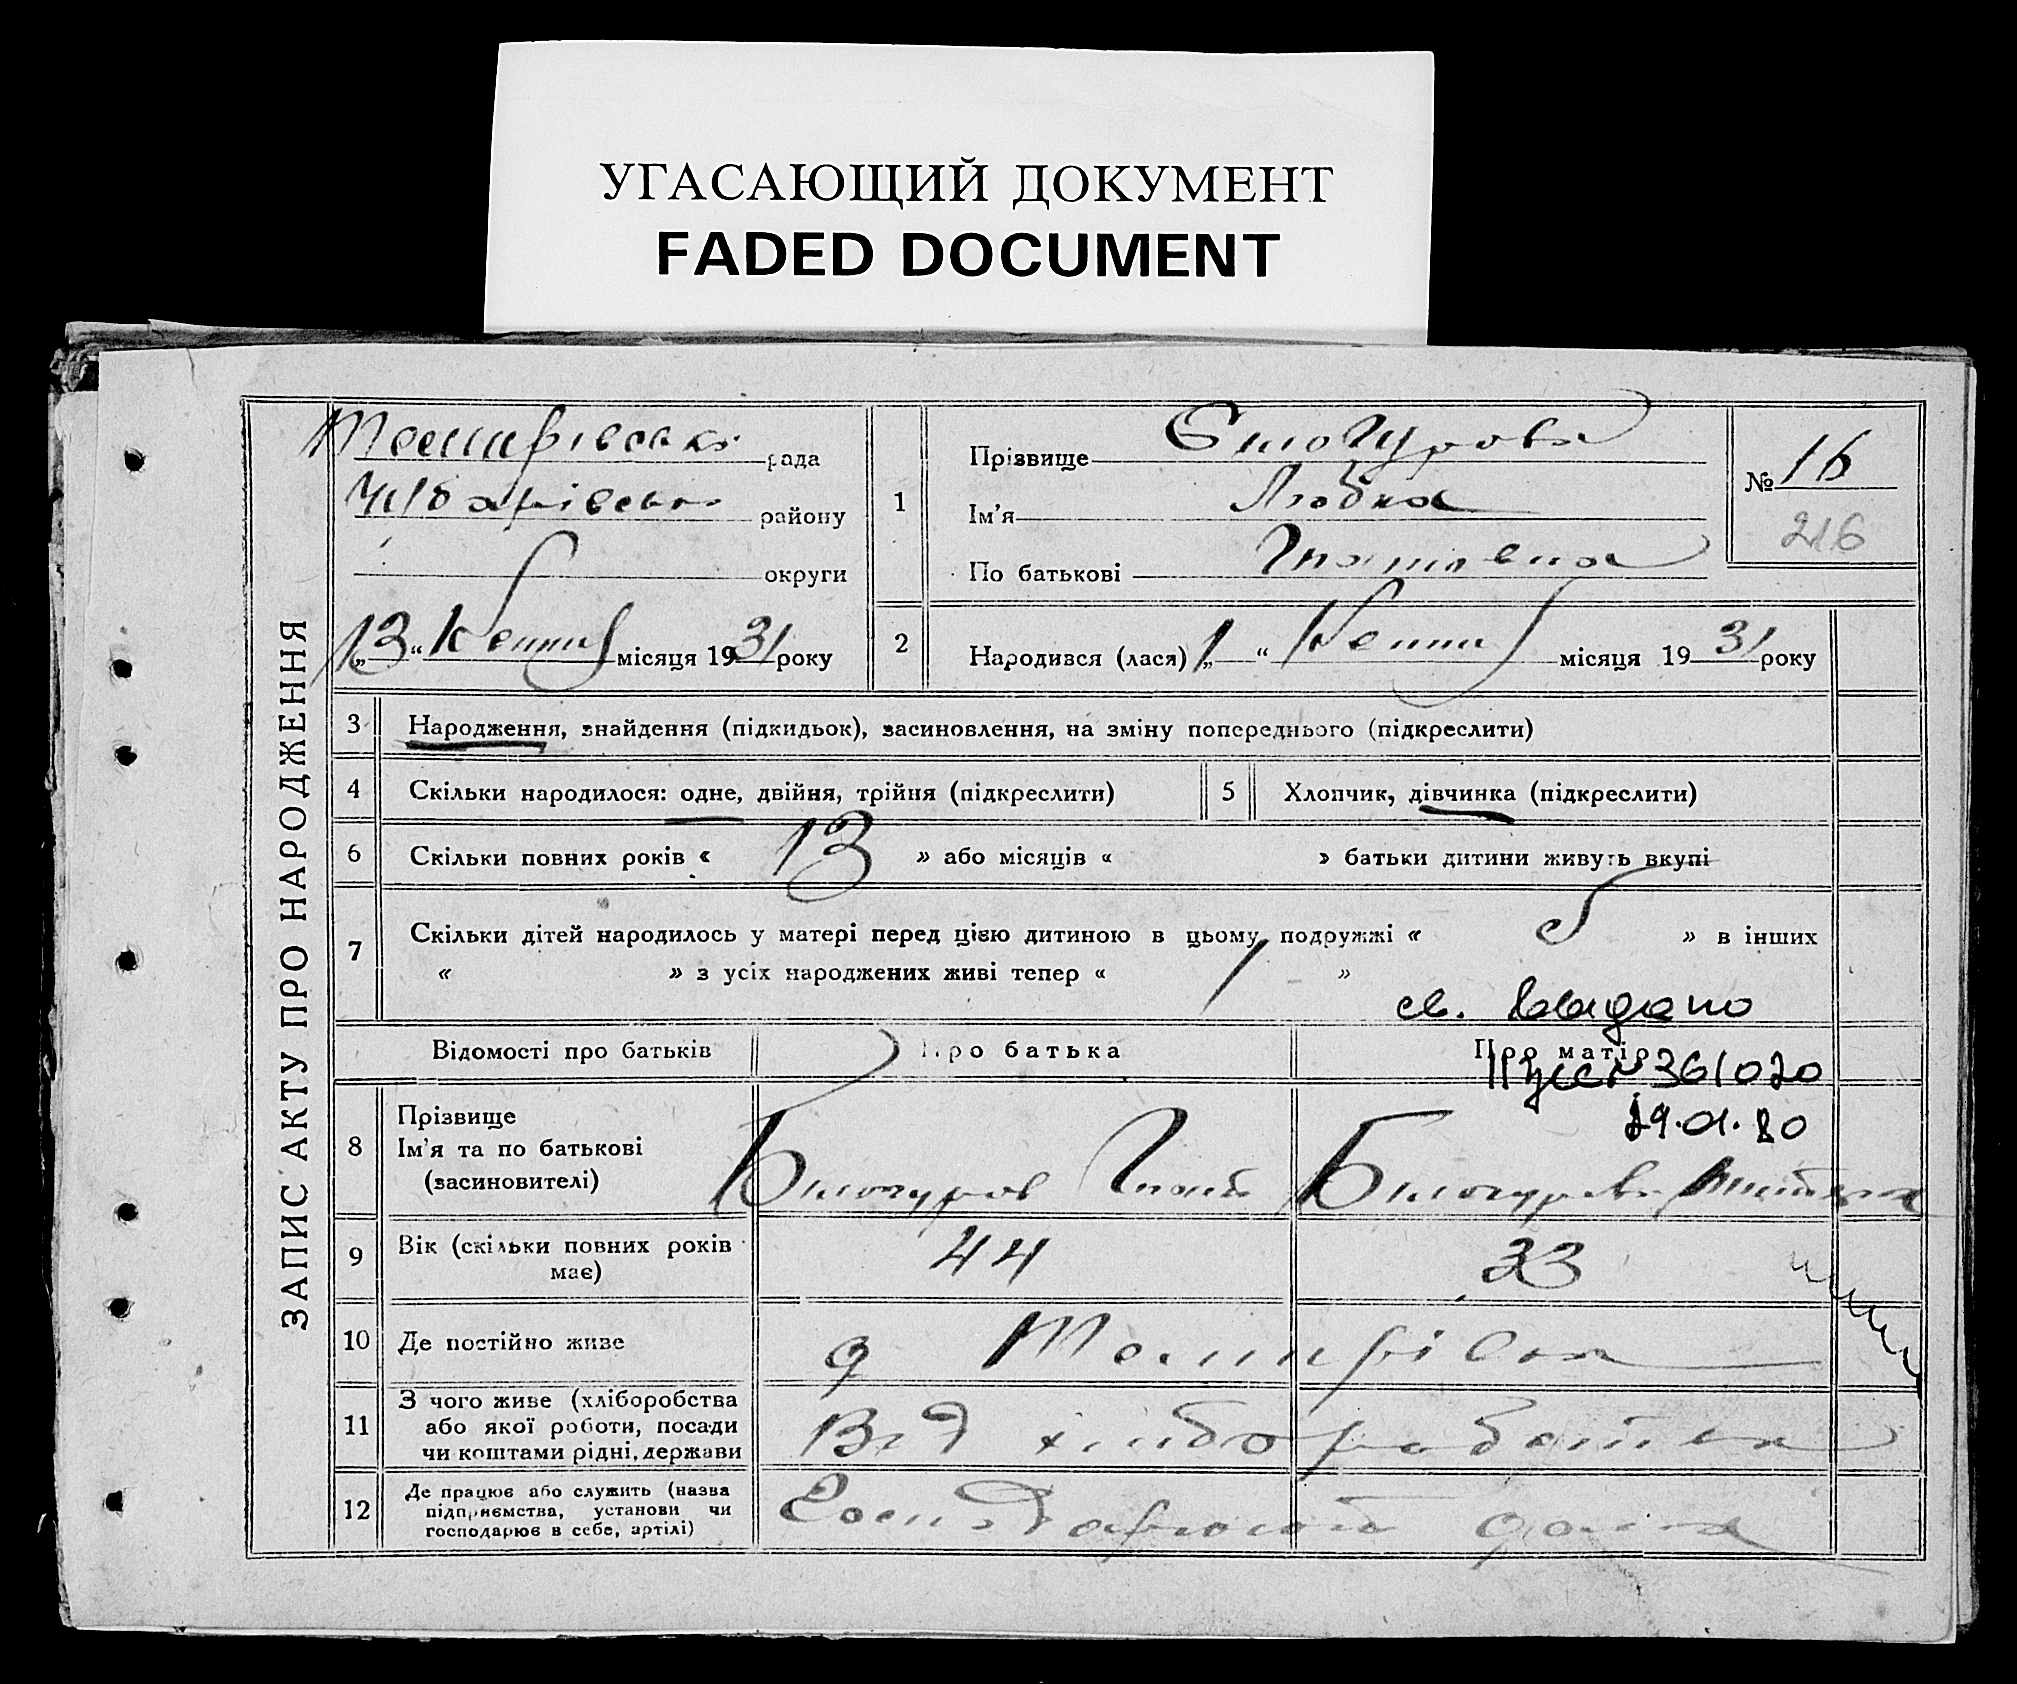 УГАСАЮЩИЙ ДОКУМЕНТ
FADED DOCUMENT
ЗАПИС АКТУ ПРО НАРОДЖЕННЯ
рада
району
округи
„13“ Квітня місяця 1931 року
1
Прізвище Білогурова
Ім'я Любка
По батькові Гнатівна
№ 16
216
2
Народився (лася) „1“ Квітня місяця 1931 року
3 Народження, знайдення (підкидьок), засиновлення, на зміну попереднього (підкреслити)
4 Скільки народилося: одне, двійня, трійня (підкреслити)
5 Хлопчик, дівчинка (підкреслити)
6 Скільки повних років « 13 » або місяців « » батьки дитини живуть вкупі
7 Скільки дітей народилось у матері перед цією дитиною в цьому подружжі « 5 » в інших
« » з усіх народжених живі тепер « 1 »
св. выдано
№ 361020
29.01.80
Відомості про батьків Про батька Про матір
8 Прізвище
Ім'я та по батькові
(засиновителі)
Білогуров Гнат Білогурова
9 Вік (скільки повних років
має)
44 33
10 Де постійно живе
11 З чого живе (хліборобства
або якої роботи, посади
чи коштами рідні, держави
Від хліборобства
12 Де працює або служить (назва
підприємства, установи чи
господарює в себе, артілі)